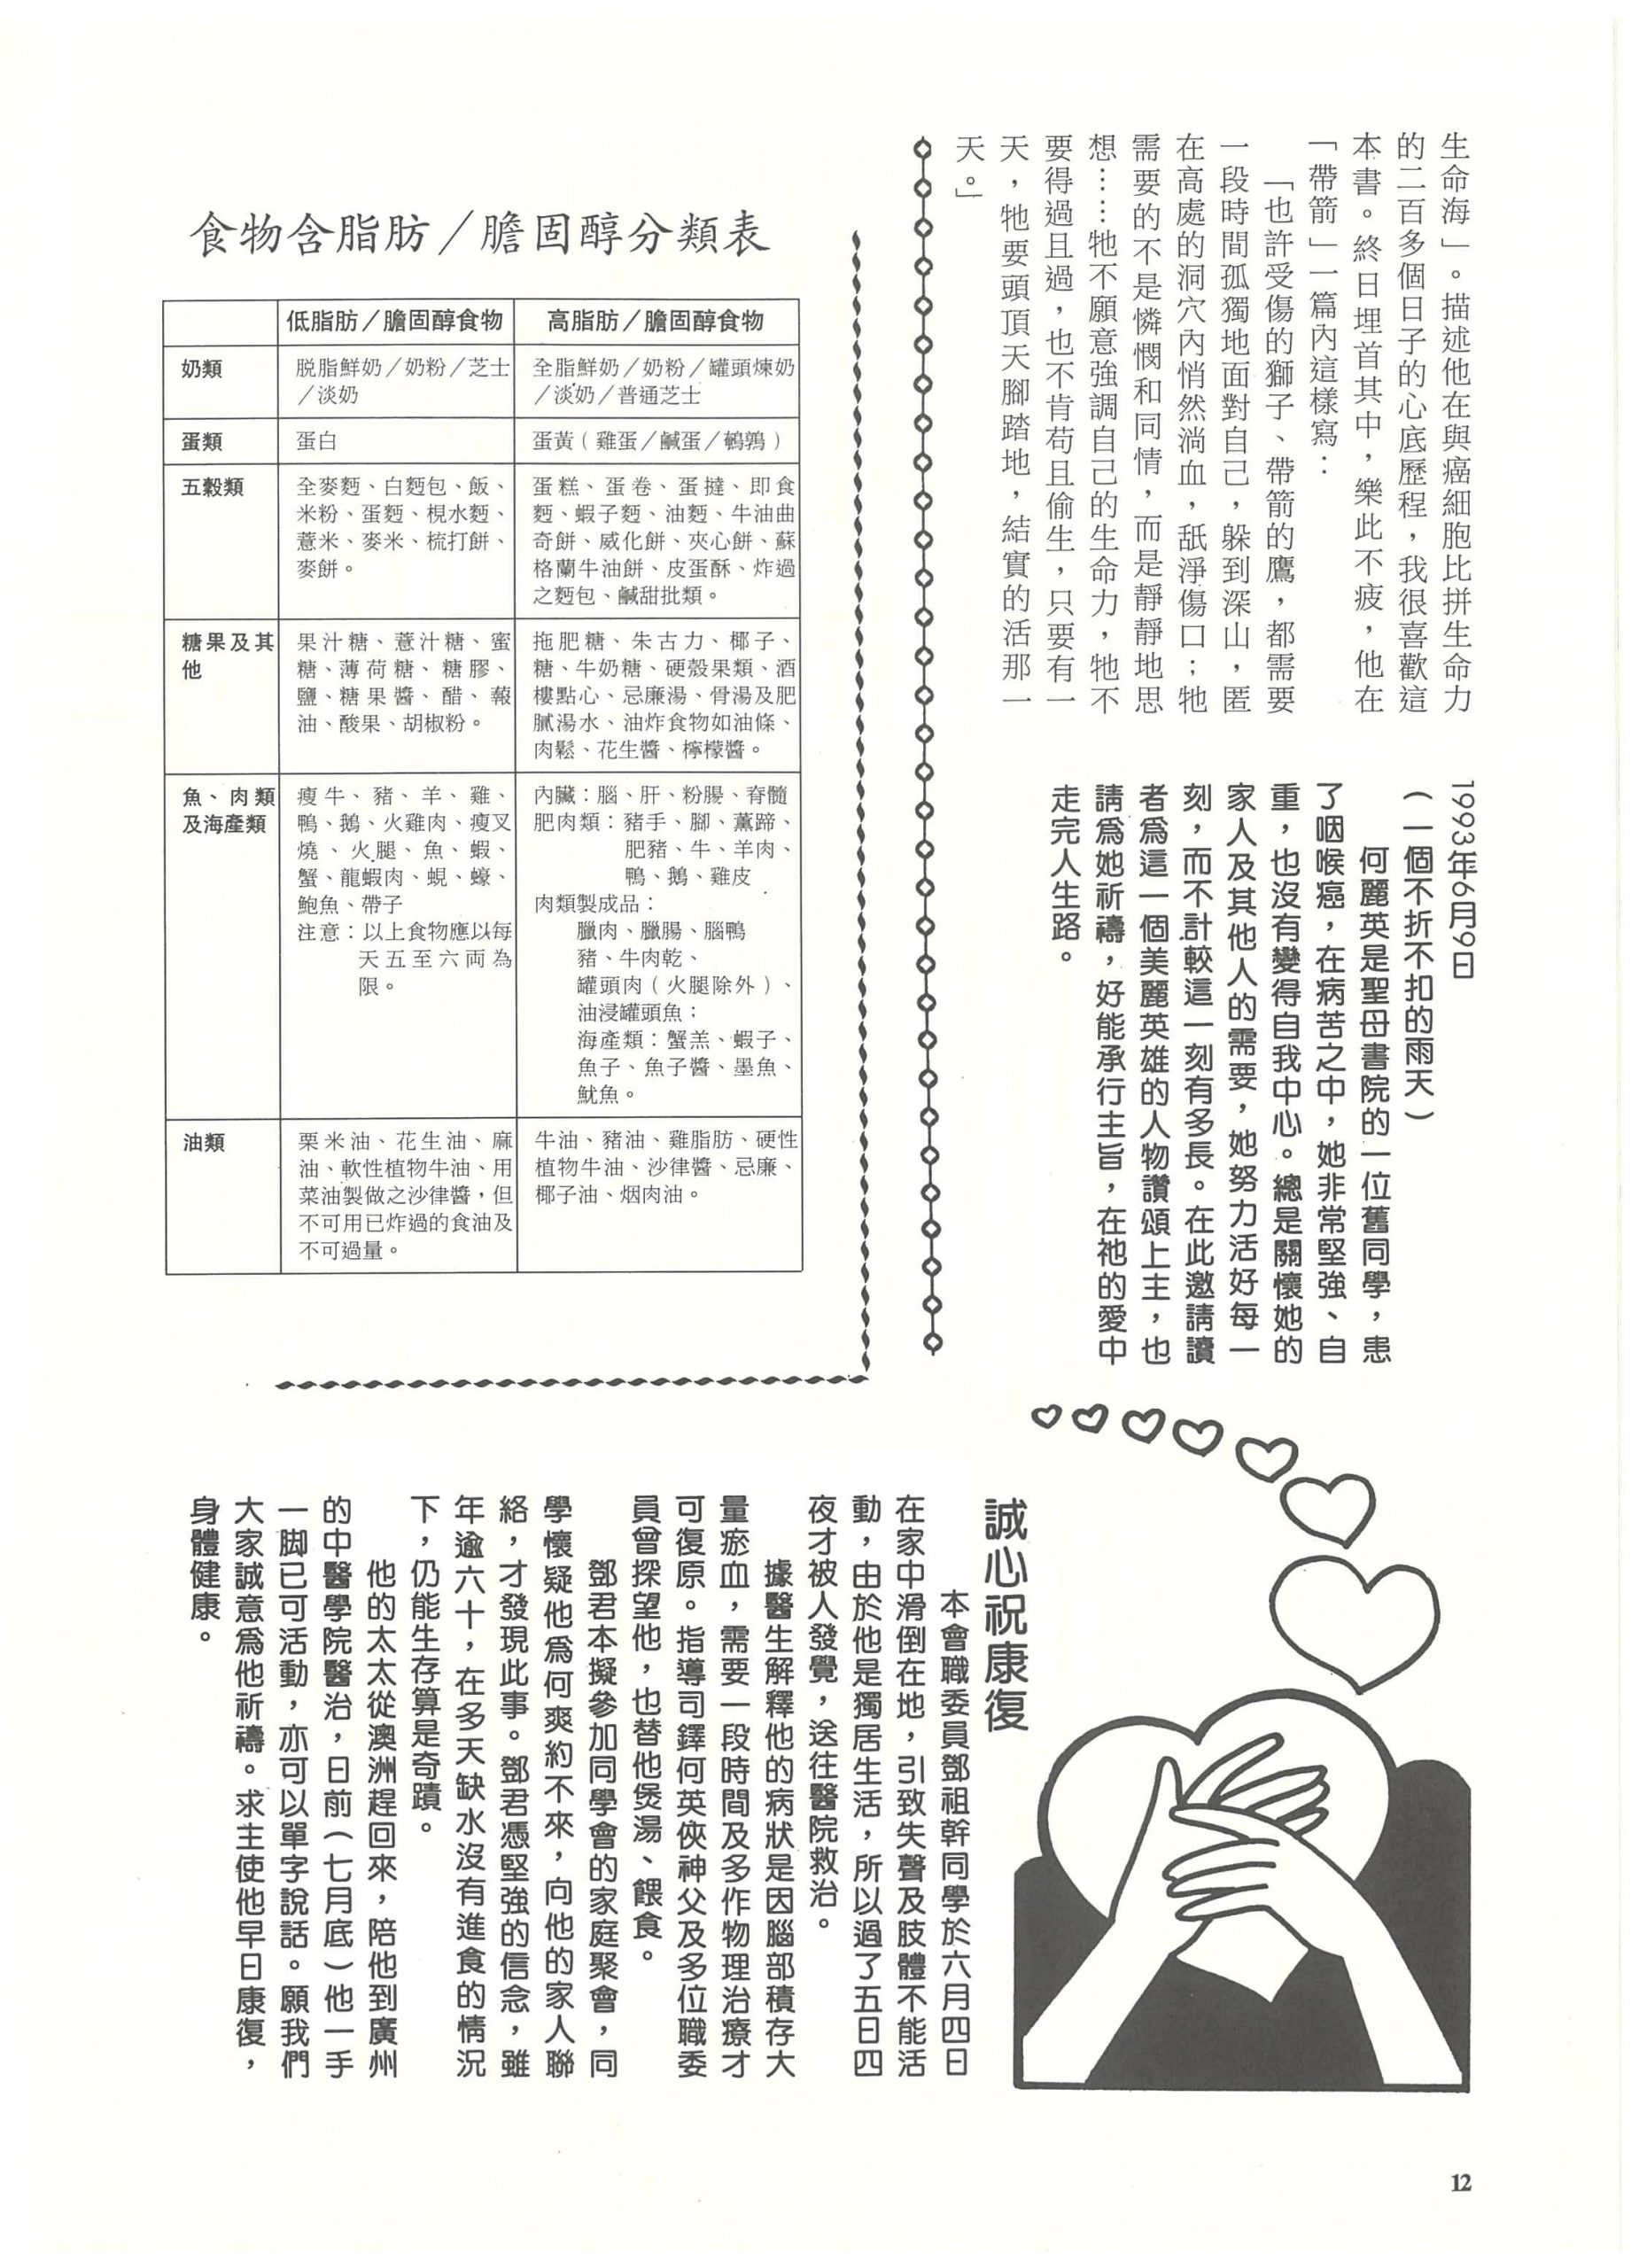 生命海」。描述他在與癌細胞比拼生命力
的二百多個日子的心底歷程，我很喜歡這
本書。終日埋首其中，樂此不疲，他在
「帶箭」一篇內這樣寫：
「也許受傷的獅子、帶箭的鷹，都需要
一段時間孤獨地面對自己，躲到深山，匿
在高處的洞穴內悄然淌血，舐淨傷口；牠
需要的不是憐憫和同情，而是靜靜地思
想……牠不願意強調自己的生命力，牠不
要得過且過，也不肯苟且偷生，只要有一
天，牠要頭頂天腳踏地，結實的活那一
天。」
1993年6月9日
（一個不折不扣的雨天）
何麗英是聖母書院的一位舊同學，患
了咽喉癌，在病苦之中，她非常堅強、自
重，也沒有變得自我中心。總是關懷她的
家人及其他人的需要，她努力活好每一
刻，而不計較這一刻有多長。在此邀請讀
者爲這一個美麗英雄的人物讚頌上主，也
請爲她祈禱，好能承行主旨，在祂的愛中
走完人生路。
食物含脂肪／膽固醇分類表
低脂肪／膽固醇食物 高脂肪／膽固醇食物
奶類
脫脂鮮奶／奶粉／芝士
／淡奶
全脂鮮奶／奶粉／罐頭煉奶
／淡奶／普通芝士
蛋類
蛋白
蛋黃（雞蛋／鹹蛋／鵪鶉）
五穀類
全麥麪、白麪包、飯、
米粉、蛋麪、梘水麪、
薏米、麥米、梳打餅、
麥餅。
蛋糕、蛋卷、蛋撻、即食
麪、蝦子麪、油麪、牛油曲
奇餅、威化餅、夾心餅、蘇
格蘭牛油餅、皮蛋酥、炸過
之麪包、鹹甜批類。
糖果及其
他
果汁糖、薏汁糖、蜜
糖、薄荷糖、糖膠、
鹽、糖果醬、醋、豉
油、酸果、胡椒粉。
拖肥糖、朱古力、椰子、
糖、牛奶糖、硬殼果類、酒
樓點心、忌廉湯、骨湯及肥
膩湯水、油炸食物如油條、
肉鬆、花生醬、檸檬醬。
魚、肉類
及海產類
瘦牛、豬、羊、雞、
鴨、鵝、火雞肉、瘦叉
燒、火腿、魚、蝦、
蟹、龍蝦肉、蜆、蠔、
鮑魚、帶子
注意：以上食物應以每
天五至六両為
限。
內臟：腦、肝、粉腸、脊髓
肥肉類：豬手、腳、薰蹄、
肥豬、牛、羊肉、
鴨、鵝、雞皮
肉類製成品：
臘肉、臘腸、腦鴨
豬、牛肉乾、
罐頭肉（火腿除外）、
油浸罐頭魚；
海產類：蟹羔、蝦子、
魚子、魚子醬、墨魚、
魷魚。
油類
粟米油、花生油、麻
油、軟性植物牛油、用
菜油製做之沙律醬，但
不可用已炸過的食油及
不可過量。
牛油、豬油、雞脂肪、硬性
植物牛油、沙律醬、忌廉、
椰子油、烟肉油。
誠心祝康復
本會職委員鄧祖幹同學於六月四日
在家中滑倒在地，引致失聲及肢體不能活
動，由於他是獨居生活，所以過了五日四
夜才被人發覺，送往醫院救治。
據醫生解釋他的病狀是因腦部積存大
量瘀血，需要一段時間及多作物理治療才
可復原。指導司鐸何英俠神父及多位職委
員曾探望他，也替他煲湯、餵食。
鄧君本擬參加同學會的家庭聚會，同
學懷疑他爲何爽約不來，向他的家人聯
絡，才發現此事。鄧君憑堅強的信念，雖
年逾六十，在多天缺水沒有進食的情況
下，仍能生存算是奇蹟。
他的太太從澳洲趕回來，陪他到廣州
的中醫學院醫治，日前（七月底）他一手
一脚已可活動，亦可以單字說話。願我們
大家誠意爲他祈禱。求主使他早日康復，
身體健康。
12